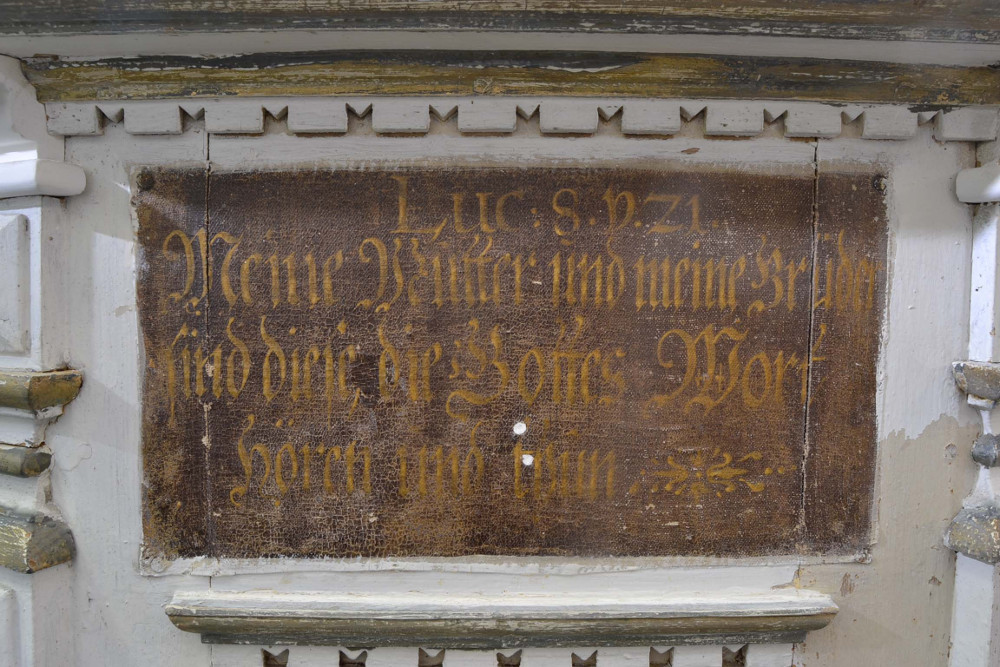 Luc: 8. v. 21.
Meine Mütter und meine Brüder
sind diese, die Gottes Wort
hören und thun